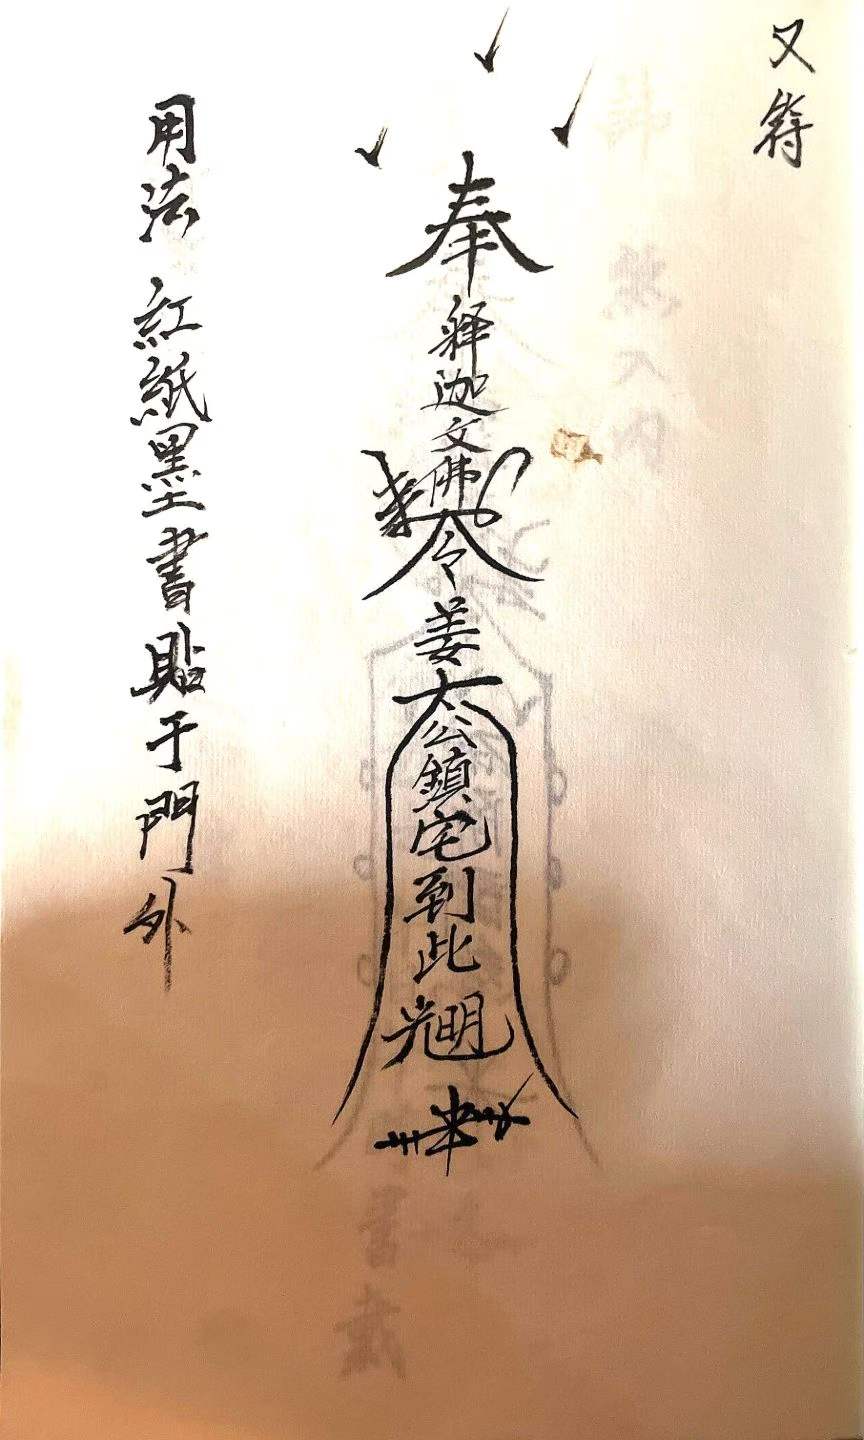 又符
奉釋迦文佛令姜太公鎮宅到此光明
用法 紅紙墨書貼于門外